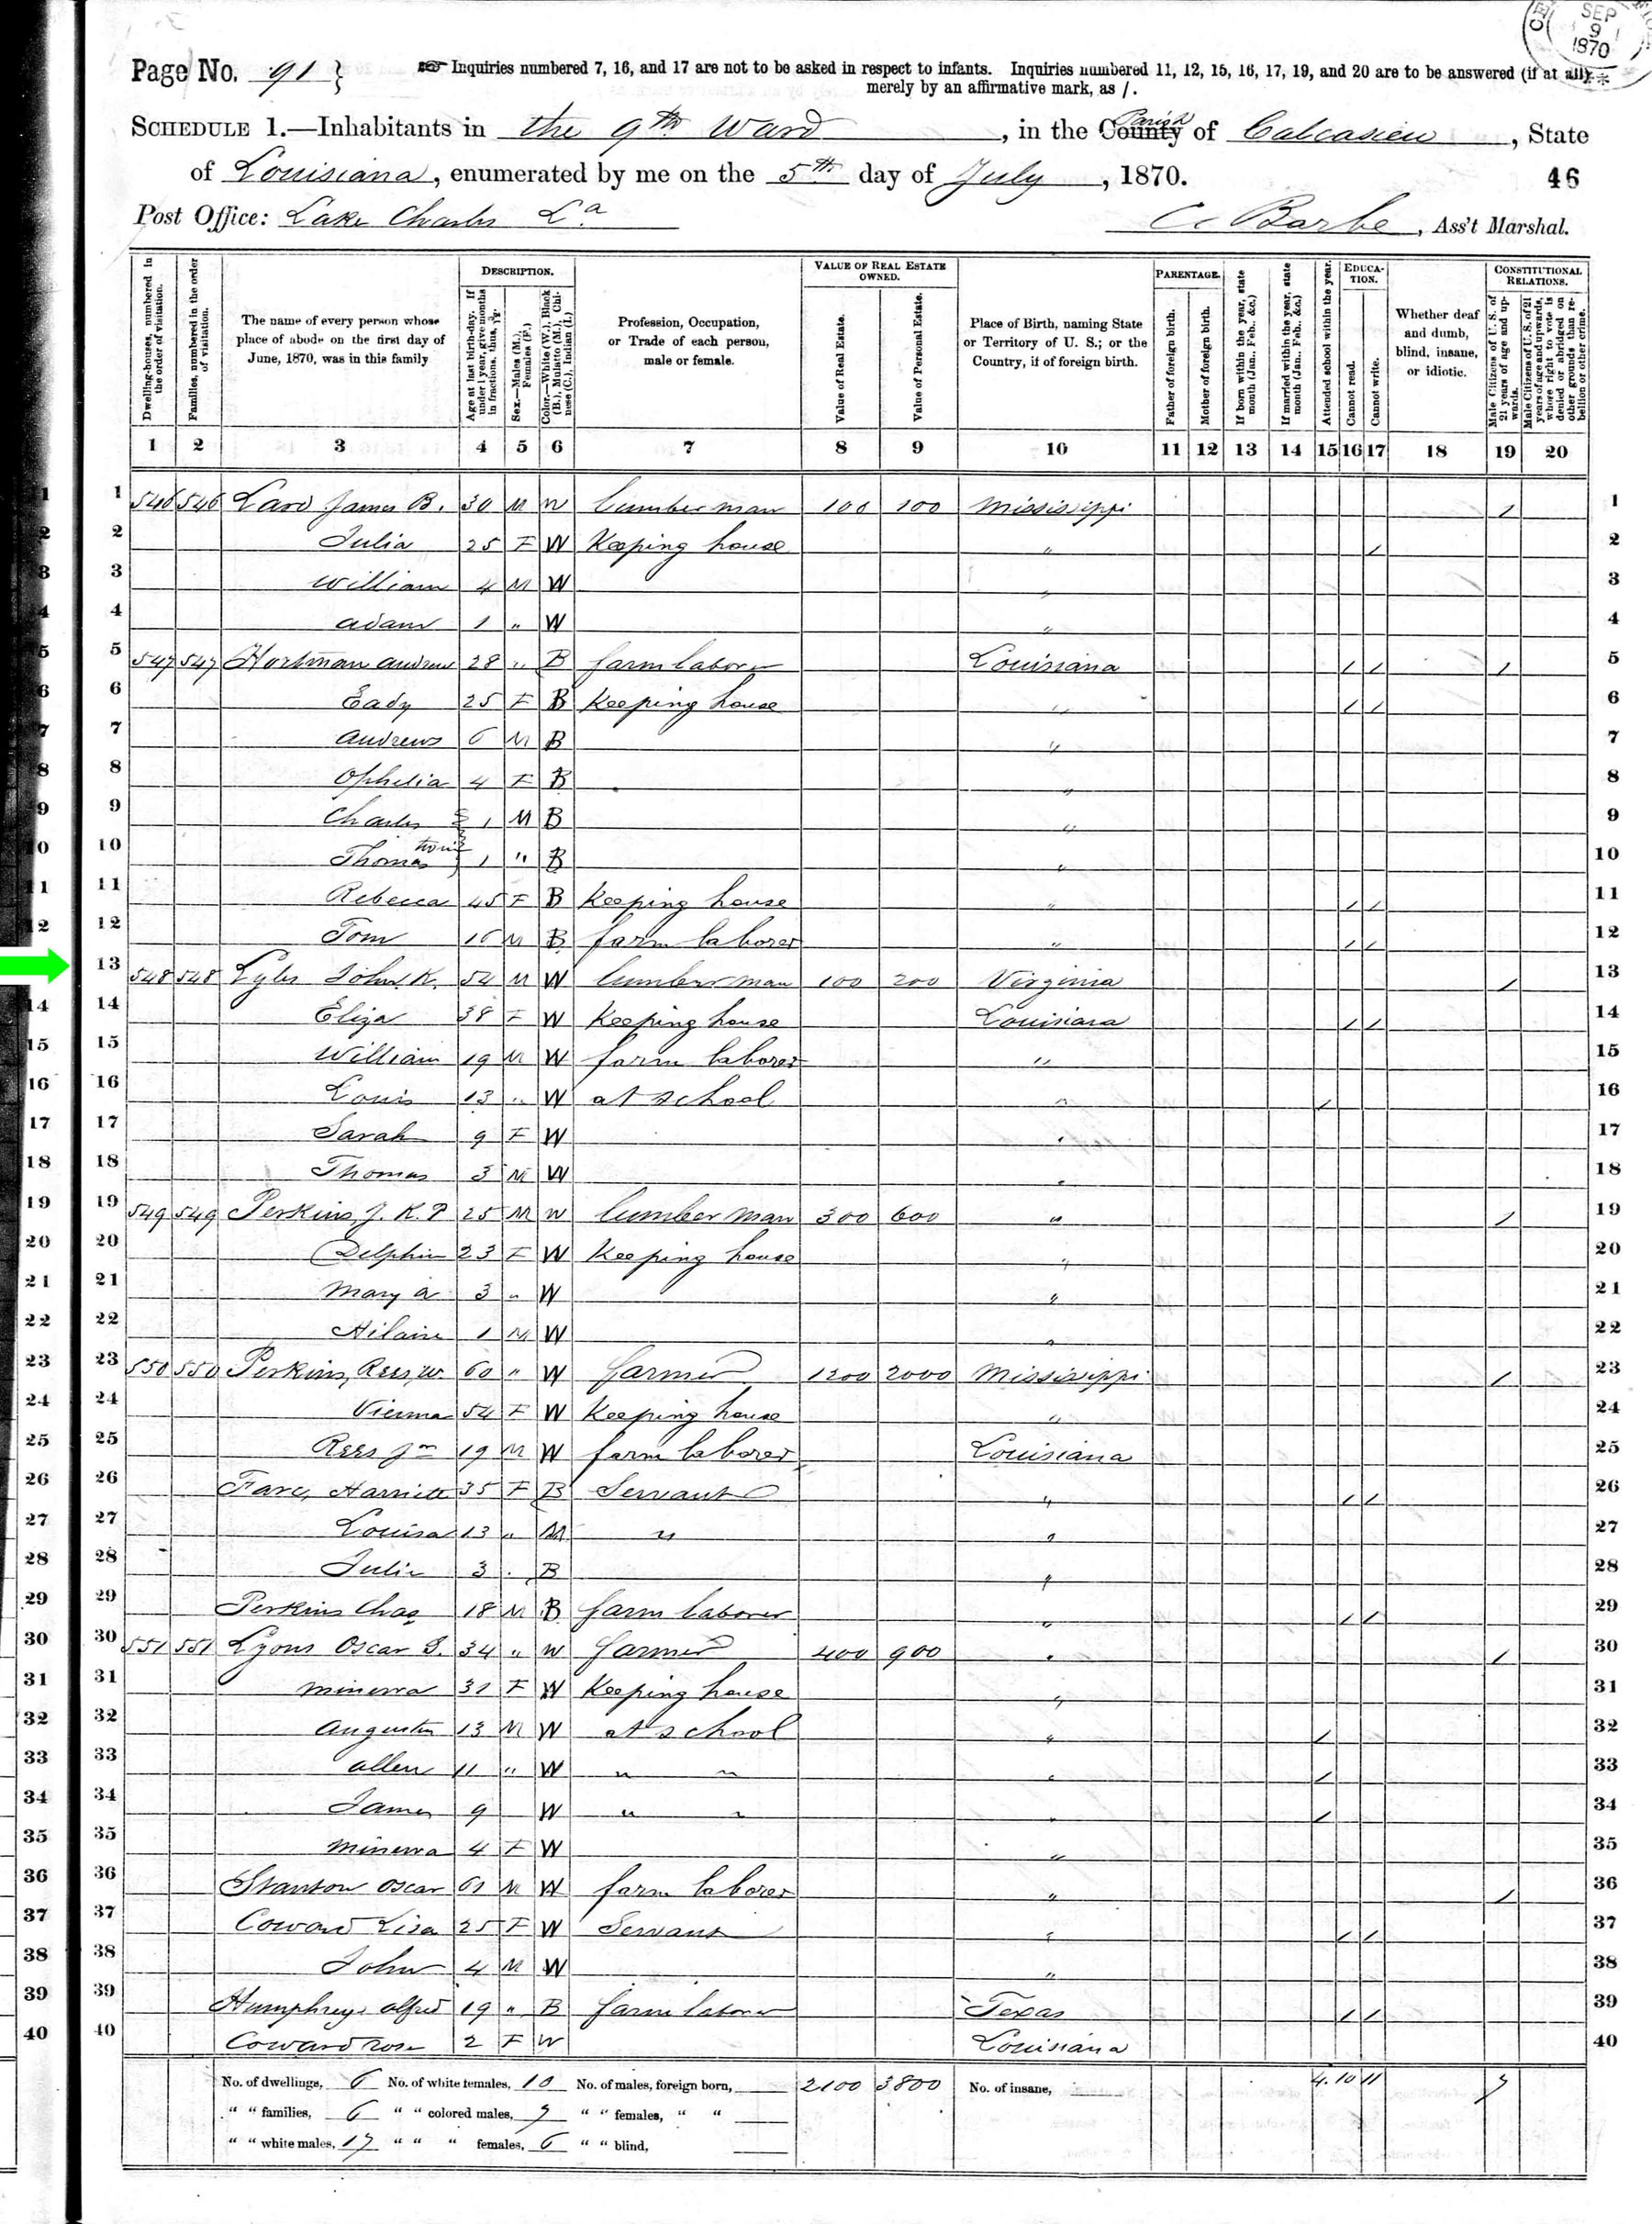 SEP
9
1870
Page No. 91
Inquiries numbered 7, 16, and 17 are not to be asked in respect to infants. Inquiries numbered 11, 12, 15, 16, 17, 19, and 20 are to be answered (if at all)
merely by an affirmative mark, as /.
SCHEDULE 1.—Inhabitants in the 9th Ward, in the County Parish of Calcasieu, State
of Louisiana, enumerated by me on the 5th day of July, 1870.
46
Post Office: Lake Charles La
C. Barbe, Ass't Marshal.
Dwelling-houses, numbered in the order of visitation.
Families, numbered in the order of visitation.
The name of every person whose place of abode on the first day of June, 1870, was in this family
DESCRIPTION.
Age at last birth-day. If under 1 year, give months in fractions, thus, 3/12.
Sex.—Males (M.), Females (F.)
Color.—White (W.), Black (B.), Mulatto (M.), Chinese (C.), Indian (I.)
Profession, Occupation, or Trade of each person, male or female.
VALUE OF REAL ESTATE OWNED.
Value of Real Estate.
Value of Personal Estate.
Place of Birth, naming State or Territory of U. S.; or the Country, if of foreign birth.
PARENTAGE.
Father of foreign birth.
Mother of foreign birth.
If born within the year, state month (Jan., Feb., &c.)
If married within the year, state month (Jan., Feb., &c.)
Attended school within the year.
EDUCATION.
Cannot read.
Cannot write.
Whether deaf and dumb, blind, insane, or idiotic.
CONSTITUTIONAL RELATIONS.
Male Citizens of U. S. of 21 years of age and upwards.
Male Citizens of U. S. of 21 years of age and upwards, whose right to vote is denied or abridged on other grounds than rebellion or other crime.
1 2 3 4 5 6 7 8 9 10 11 12 13 14 15 16 17 18 19 20
1 546 546 James B. 30 M W lumber man 100 100 Mississippi / 1
2 Julia 25 F W Keeping house " / 2
3 William 4 M W " 3
4 Adam 1 " W " 4
5 547 547 Hartman Andrew 28 " B farm laborer Louisiana / / / 5
6 Eady 25 F B Keeping house " / / 6
7 Andrews 6 M B " 7
8 Ophelia 4 F B " 8
9 Charles 1 M B " 9
10 Thomas twins 1 " B " 10
11 Rebecca 45 F B Keeping house " / / 11
12 Tom 16 M B farm laborer " / / 12
13 548 548 Lyles John K. 54 M W lumber man 100 200 Virginia / 13
14 Eliza 38 F W Keeping house Louisiana / / 14
15 William 19 M W farm laborer " 15
16 Louis 13 " W at school " / 16
17 Sarah 9 F W " 17
18 Thomas 3 M W " 18
19 549 549 Perkins J. K. P 25 M W lumber man 300 600 " / 19
20 Delphin 23 F W Keeping house " 20
21 Mary A 3 " W " 21
22 Hilaire 1 M W " 22
23 550 550 Perkins, Rees, W. 60 " W farmer 1200 2000 Mississippi / 23
24 54 F W Keeping house " 24
25 Rees Jr 19 M W farm laborer Louisiana 25
26 Harriett 35 F B Servant " / / 26
27 Louisa 13 " M " " 27
28 Julia 3 " B " 28
29 Perkins Chas 18 M B farm laborer " / / 29
30 551 551 Lyons Oscar S. 34 " W farmer 400 900 " / 30
31 Minerva 31 F W Keeping house " 31
32 Augustus 13 M W at school " / 32
33 Allen 11 " W " " " / 33
34 James 9 W " " " / 34
35 Minerva 4 F W " 35
36 Stanton Oscar 61 M W farm laborer " / 36
37 Coward Liza 25 F W Servant " / / 37
38 John 4 M W " 38
39 Humphreys Alfred 19 " B farm laborer Texas / / 39
40 Coward Rosa 2 F W Louisiana 40
No. of dwellings, 6 No. of white females, 10 No. of males, foreign born, 2100 3800 No. of insane, 4 10 11 7
" " families, 6 " " colored males, 7 " " females, " "
" " white males, 17 " " " females, 6 " " blind,